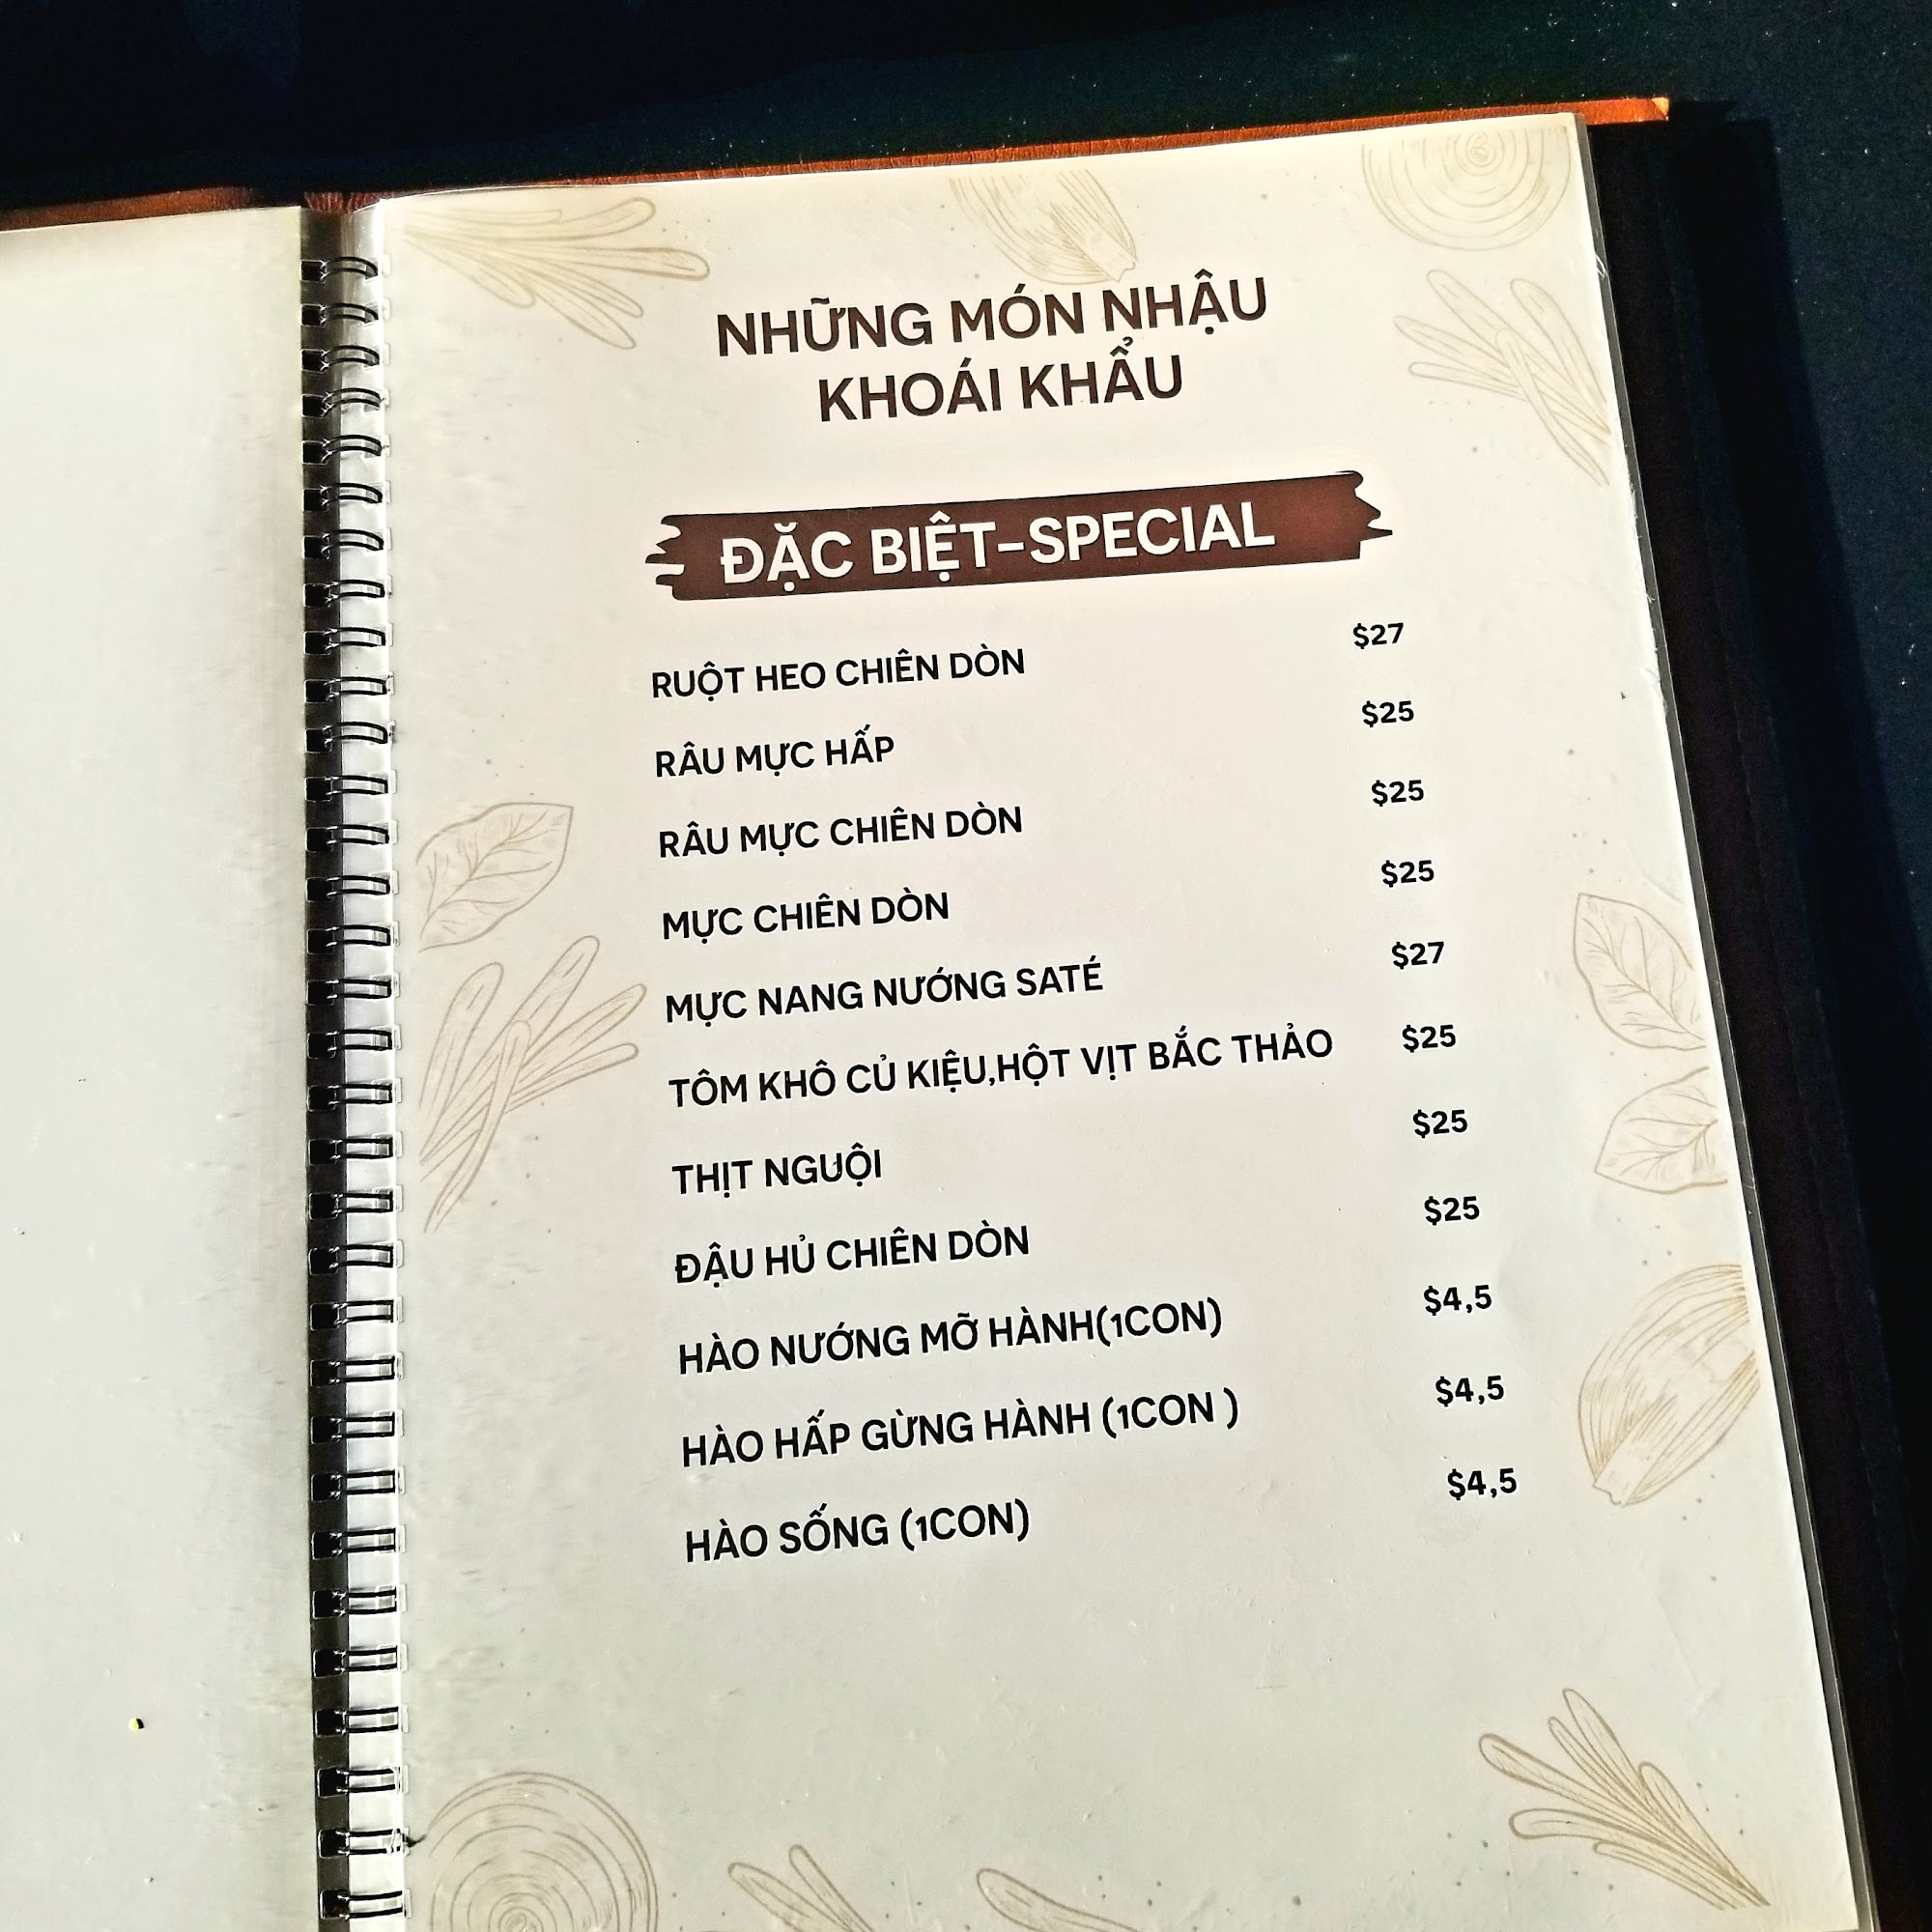 NHỮNG MÓN NHẬU
KHOÁI KHẨU
ĐẶC BIỆT-SPECIAL
RUỘT HEO CHIÊN DÒN $27
RÂU MỰC HẤP $25
RÂU MỰC CHIÊN DÒN $25
MỰC CHIÊN DÒN $25
MỰC NANG NƯỚNG SATÉ $27
TÔM KHÔ CỦ KIỆU,HỘT VỊT BẮC THẢO $25
THỊT NGUỘI $25
ĐẬU HỦ CHIÊN DÒN $25
HÀO NƯỚNG MỠ HÀNH(1CON) $4,5
HÀO HẤP GỪNG HÀNH (1CON ) $4,5
HÀO SỐNG (1CON) $4,5